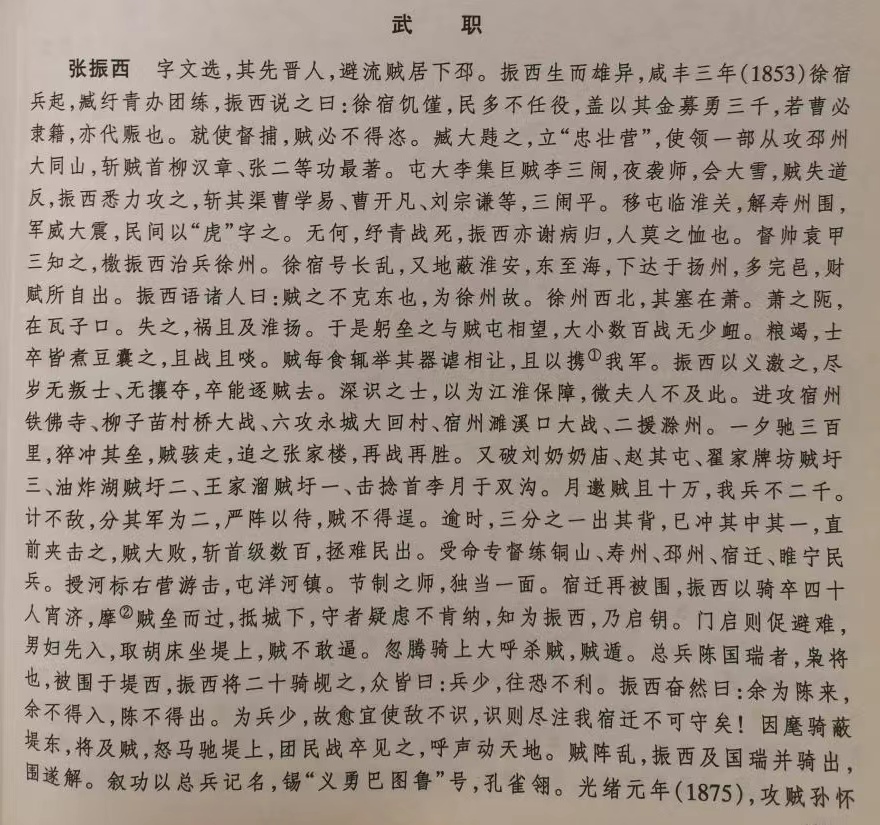 武 职
张振西 字文选，其先晋人，避流贼居下邳。振西生而雄异，咸丰三年(1853)徐宿
兵起，臧纡青办团练，振西说之曰：徐宿饥馑，民多不任役，盖以其金募勇三千，若曹必
隶籍，亦代赈也。就使督捕，贼必不得恣。臧大韪之，立“忠壮营”，使领一部从攻邳州
大同山，斩贼首柳汉章、张二等功最著。屯大李集巨贼李三闹，夜袭师，会大雪，贼失道
反，振西悉力攻之，斩其渠曹学易、曹开凡、刘宗谦等，三闹平。移屯临淮关，解寿州围，
军威大震，民间以“虎”字之。无何，纡青战死，振西亦谢病归，人莫之恤也。督帅袁甲
三知之，檄振西治兵徐州。徐宿号长乱，又地蔽淮安，东至海，下达于扬州，多完邑，财
赋所自出。振西语诸人曰：贼之不克东也，为徐州故。徐州西北，其塞在萧。萧之阨，
在瓦子口。失之，祸且及淮扬。于是躬垒之与贼屯相望，大小数百战无少衄。粮竭，士
卒皆煮豆囊之，且战且啖。贼每食辄举其器谑相让，且以携①我军。振西以义激之，尽
岁无叛士、无攘夺，卒能逐贼去。深识之士，以为江淮保障，微夫人不及此。进攻宿州
铁佛寺、柳子苗村桥大战、六攻永城大回村、宿州濉溪口大战、二援滁州。一夕驰三百
里，猝冲其垒，贼骇走，追之张家楼，再战再胜。又破刘奶奶庙、赵其屯、翟家牌坊贼圩
三、油炸湖贼圩二、王家溜贼圩一、击捻首李月于双沟。月邀贼且十万，我兵不二千。
计不敌，分其军为二，严阵以待，贼不得逞。逾时，三分之一出其背，已冲其中其一，直
前夹击之，贼大败，斩首级数百，拯难民出。受命专督练铜山、寿州、邳州、宿迁、睢宁民
兵。授河标右营游击，屯洋河镇。节制之师，独当一面。宿迁再被围，振西以骑卒四十
人宵济，摩②贼垒而过，抵城下，守者疑虑不肯纳，知为振西，乃启钥。门启则促避难，
男妇先入，取胡床坐堤上，贼不敢逼。忽腾骑上大呼杀贼，贼遁。总兵陈国瑞者，枭将
也，被围于堤西，振西将二十骑觇之，众皆曰：兵少，往恐不利。振西奋然曰：余为陈来，
余不得入，陈不得出。为兵少，故愈宜使敌不识，识则尽注我宿迁不可守矣！因麾骑蔽
堤东，将及贼，怒马驰堤上，团民战卒见之，呼声动天地。贼阵乱，振西及国瑞并骑出，
围遂解。叙功以总兵记名，锡“义勇巴图鲁”号，孔雀翎。光绪元年(1875)，攻贼孙怀